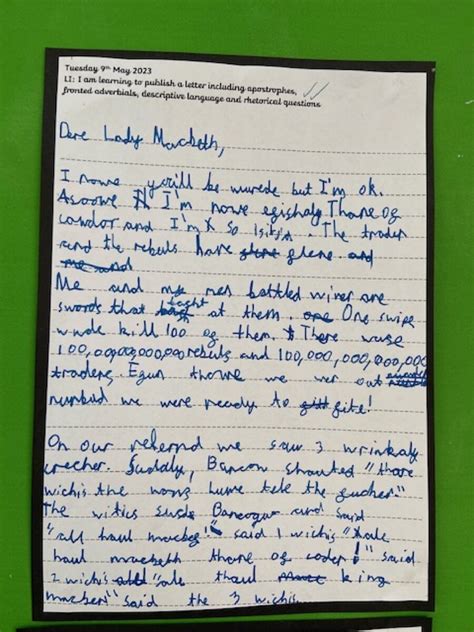 Tuesday 9th May 2023
LI: I am learning to publish a letter including apostrophes,
fronted adverbials, descriptive language and rhetorical questions
Dere Lady Macbeth,
I nowe you'll be wurede but I'm ok.
I'm nowe Thane og
and I'm so . The trader
and the rebuls have
Me and my men battled wiver are
swords that at them. One swipe
wude kill 100 og them. There wase
100,00,00,000,000 rebuls and 100,000,000,000,000
traders, Egun thowe we wer out
numbud we were ready to fite!
On our reternd we saw 3 wrinkaly
crecher. Suddly, shouted "thare
wichis the wons hume tele the
The and said
"all haul " said 1 wichis "hale
haul macbeth thane og coder!" said
2 wichis "ale haul king
said the 3 wichis